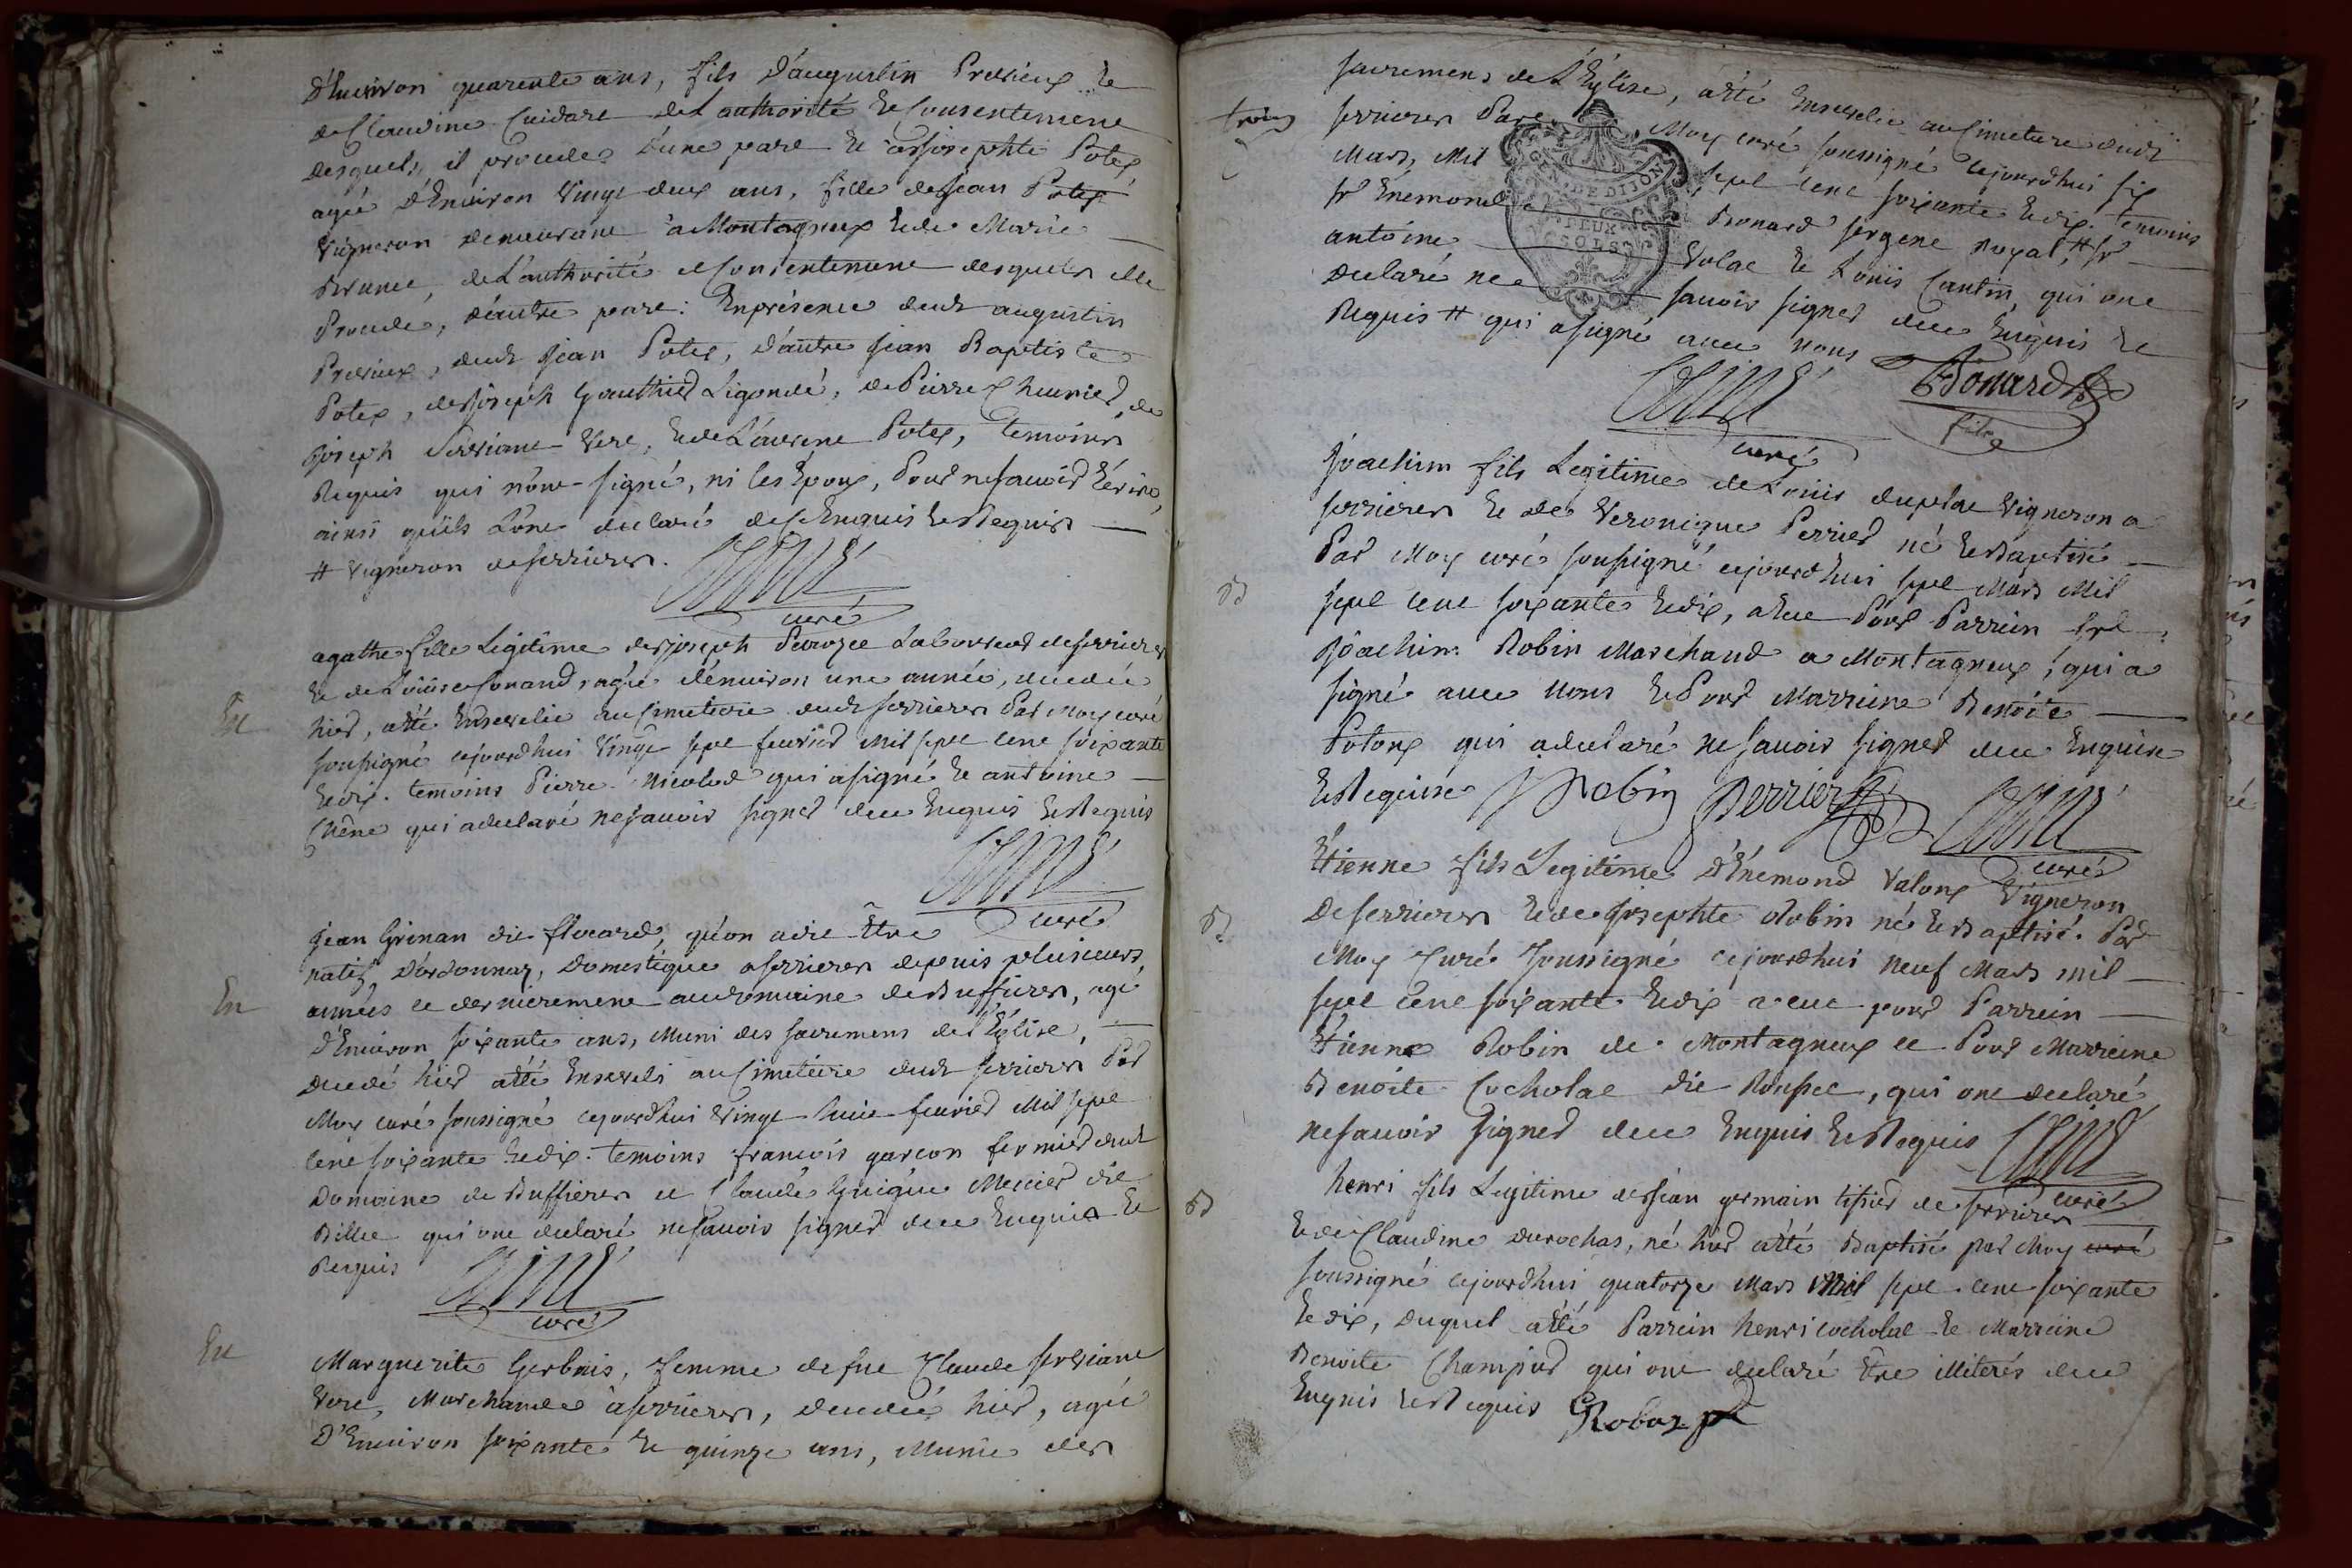 d'Environ quarente ans, fils d'augustin Prévieux et
de Claudine Cuidare de l'authorité et Consentement
desquels, il procede, d'une part et à josephte Potex
agée d'Environ Vingt deux ans, fille de jean Potex
Vigneron demeurant à Montagneux et de Marie
Brunet, de l'authorité et Consentement desquels elle
Procede, d'autre part: En présence dudt augustin
Prévieux, dudt jean Potex, d'autre jean Baptiste
Potex, de joseph Gauthier Ligondé, de Pierre Chunier, de
joseph Servianne Vert, et de Laurent Potex, temoins
Requis qui n'ont signé, ni les Epoux, Pour ne savoir Ecrire,
ainsi qu'ils l'ont declaré de ce Enquis et Requis
# Vigneron de serrieres.
curé
agathe fille Legitime de joseph Labourend de serrieres
et de Louise Conand, agée d'environ une année, decedée
En
hier, a été Ensevelie au Cimetiere dudt serrieres Par Moy curé
soussigné cejourdhui Vingt sept fevrier Mil sept cent soixante
et dix. temoins Pierre Nicolod qui a signé et antoine
Chêne qui a declaré ne savoir signer de ce Enquis et Requis
curé
jean Grinan dit flocard, qu'on a dit être
natif d'ordonnaz, Domestique a serrieres depuis plusieurs
En
années et dernierement au domaine de Buffieres, agé
d'Environ soixante ans, Muni des sacremens de l'Eglise,
decedé hier a été Enseveli au Cimetiere dudt serrieres Par
Moy curé soussigné cejourdhui Vingt huit fevrier Mil sept
cent soixante et dix. temoins francois garcon fermier dudt
Domaine de Buffieres et Claude Guigue Mercier dit
Billet qui ont declaré ne savoir signer de ce Enquis et
Requis
curé
En
Marguerite Gerbais, femme de feu Claude serviant
Vert, Marchande à serrieres, decedée hier, agée
D'Environ soixante et quinze ans, Munie des
sacremens de L'Eglise, a été Ensevelie au Cimetiere dudt
serrieres Par Moy curé soussigné cejourdhui six
Mars, Mil sept cent soixante et dix. temoins
GEN. DE DIJON
DEUX SOLS
sr Enemond Bonard sergent Royal, # sr
antoine Volat et Louis Cantin, qui ont
declaré ne savoir signer de ce Enquis et
Requis # qui a signé avec nous
curé
Bonard
fils
joachim fils Legitime de Louis duplat Vigneron a
serrieres et de Veronique Perrier né et Baptisé
Par Moy curé soussigné cejourdhui sept Mars Mil
B
sept cent soixante et dix, a eut Pour Parrein
joachim Robin Marchand a Montagneux, qui a
signé avec nous et Pour Marreine Benoite
Poloux qui a declaré ne savoir signer de ce Enquise
et Requise Robin Perrier
curé
Etienne fils Legitime d'Enemond Valoux Vigneron
B
De serrieres et de josephte Robin né et Baptisé Par
Moy Curé soussigné cejourdhui neuf Mars mil
sept cent soixante et dix a eut pour Parrein
Etienne Robin de Montagneux et Pour Marreine
Benoite Cocholat dit Rousset, qui ont declaré
ne savoir signer de ce Enquis et Requis
curé
B
henri fils Legitime de jean germain tissier de serrieres
et de Claudine durochas, né hier a été Baptisé par Moy curé
soussigné cejourdhui quatorze Mars Mil sept cent soixante
et dix, duquel a été Parrein henri cocholat et Marreine
Benoite Champier qui ont declaré être illiterés de ce
Enquis et Requis Robaz